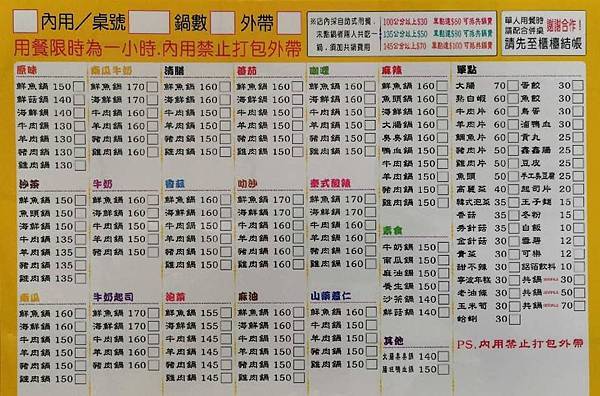 內用／桌號 鍋數 外帶
用餐限時為一小時.內用禁止打包外帶
100公分以上$30
135公分以上$50
145公分以上$80
單人用餐時
請配合併桌
謝謝合作!
請先至櫃檯結帳
原味
鮮魚鍋 150
鮮菇鍋 140
海鮮鍋 140
牛肉鍋 130
羊肉鍋 130
豬肉鍋 130
雞肉鍋 130
南瓜牛奶
鮮魚鍋 170
海鮮鍋 170
牛肉鍋 160
羊肉鍋 160
豬肉鍋 160
雞肉鍋 160
清膳
鮮魚鍋 160
海鮮鍋 160
牛肉鍋 150
羊肉鍋 150
豬肉鍋 150
雞肉鍋 150
蕃茄
鮮魚鍋 160
海鮮鍋 160
牛肉鍋 150
羊肉鍋 150
豬肉鍋 150
雞肉鍋 150
咖哩
鮮魚鍋 160
海鮮鍋 160
牛肉鍋 150
羊肉鍋 150
豬肉鍋 150
雞肉鍋 150
麻辣
鮮魚鍋 160
魚頭鍋 160
海鮮鍋 160
大腸鍋 160
臭臭鍋 160
鴨血鍋 150
牛肉鍋 150
羊肉鍋 150
豬肉鍋 150
雞肉鍋 150
沙茶
鮮魚鍋 150
魚頭鍋 150
海鮮鍋 150
牛肉鍋 135
羊肉鍋 135
豬肉鍋 135
雞肉鍋 135
牛奶
鮮魚鍋 160
海鮮鍋 160
牛肉鍋 150
羊肉鍋 150
豬肉鍋 150
雞肉鍋 150
香菇
鮮魚鍋 160
海鮮鍋 160
牛肉鍋 150
羊肉鍋 150
豬肉鍋 150
雞肉鍋 150
叻沙
鮮魚鍋 160
海鮮鍋 160
牛肉鍋 150
羊肉鍋 150
豬肉鍋 150
雞肉鍋 150
泰式酸辣
鮮魚鍋 160
海鮮鍋 160
牛肉鍋 150
羊肉鍋 150
豬肉鍋 150
雞肉鍋 150
素食
牛奶鍋 150
南瓜鍋 150
麻油鍋 150
養生鍋 150
沙茶鍋 140
鮮菇鍋 140
南瓜
鮮魚鍋 160
海鮮鍋 160
牛肉鍋 150
羊肉鍋 150
豬肉鍋 150
雞肉鍋 150
牛奶起司
鮮魚鍋 170
海鮮鍋 170
牛肉鍋 160
羊肉鍋 160
豬肉鍋 160
雞肉鍋 160
泡菜
鮮魚鍋 155
海鮮鍋 155
牛肉鍋 145
羊肉鍋 145
豬肉鍋 145
雞肉鍋 145
麻油
鮮魚鍋 160
海鮮鍋 160
牛肉鍋 150
羊肉鍋 150
豬肉鍋 150
雞肉鍋 150
山藥薏仁
鮮魚鍋 160
海鮮鍋 160
牛肉鍋 150
羊肉鍋 150
豬肉鍋 150
雞肉鍋 150
其他
大腸臭臭鍋 140
150
單點
大腸 70
點白蝦 60
牛肉片 50
羊肉片 50
鯛魚片 50
豬肉片 50
雞肉片 50
魚頭 50
高麗菜 40
韓式泡菜 35
香菇 35
杏針菇 35
金針菇 30
青菜 30
甜不辣 30
寧波年糕 30
老油條 30
玉米筍 30
蛤蜊 30
蛋餃 30
魚餃 30
魚蛋 30
滷鴨血 30
貢丸 25
鑫鑫腸 25
豆皮 25
手工臭豆腐 25
起司片 20
王子麵 15
冬粉 15
白飯 10
雪碧 12
可樂 12
鋁箔飲料 10
共鍋 30
共鍋 50
共鍋 70
PS.內用禁止打包外帶